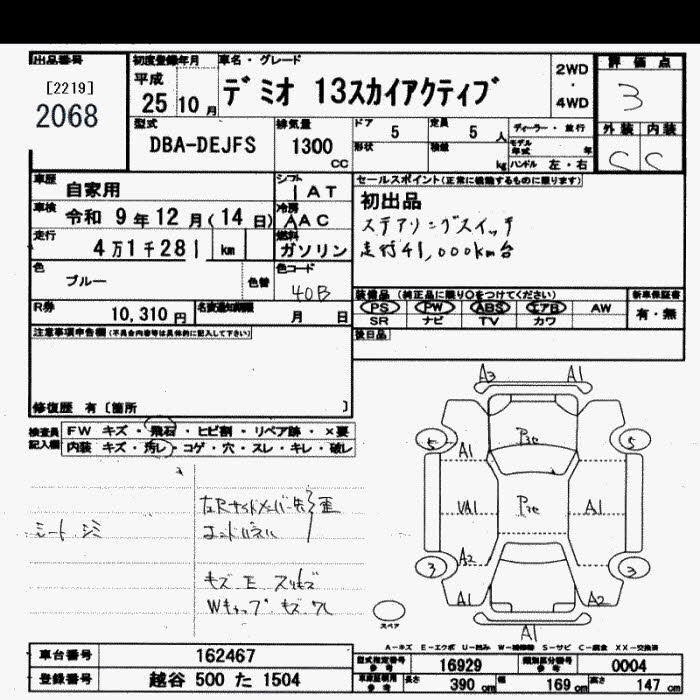 出品番号
[2219]
2068
初度登録年月
平成
25 10 月
車名・グレード
デミオ 13スカイアクティブ
2WD
・
4WD
評価点
3
外装 内装
C C
型式
DBA-DEJFS
排気量
1300
CC
ドア 5
定員 5 人
形状
積載 kg
ディーラー・並行
モデル年式 年
ハンドル 左・右
車歴 自家用
シフト
IAT
車検 令和 9 年 12 月 ( 14 日)
冷房
AAC
走行
4万1千281 km
燃料
ガソリン
色
ブルー
色替
色コード
40B
R券 10,310 円
名変通知期限 月 日
セールスポイント(正常に機能するものに限ります)
初出品
ステアリングスイッチ
走行41,000km台
装備品 (純正品に限り○をつけてください)
PS PW ABS エアB AW
SR ナビ TV カワ
新車保証書
有・無
後日品
注意事項申告欄(不具合内容等は具体的に記入して下さい)
修復歴 有〔箇所 〕
検査員
記入欄
FW キズ・飛石・ヒビ割・リペア跡・×要
内装 キズ・汚レ・コゲ・穴・スレ・キレ・破レ
シート シミ
左Rサイドメンバー先歪
エンドパネル
キズ E スリキズ
Wキャップ キズ
A3 A1
5 5
A1
P3c
VA1
P3c
A1
A2
3 3
A1 A2
A1
スペア
A-キズ E-エクボ U-凹み W-補修跡 S-サビ C-腐食 XX-交換済
車台番号 162467
登録番号 越谷 500 た 1504
型式指定番号
参考
16929
類別区分番号
参考
0004
車庫証明用
参考
長さ 390 cm 幅 169 cm 高さ 147 cm